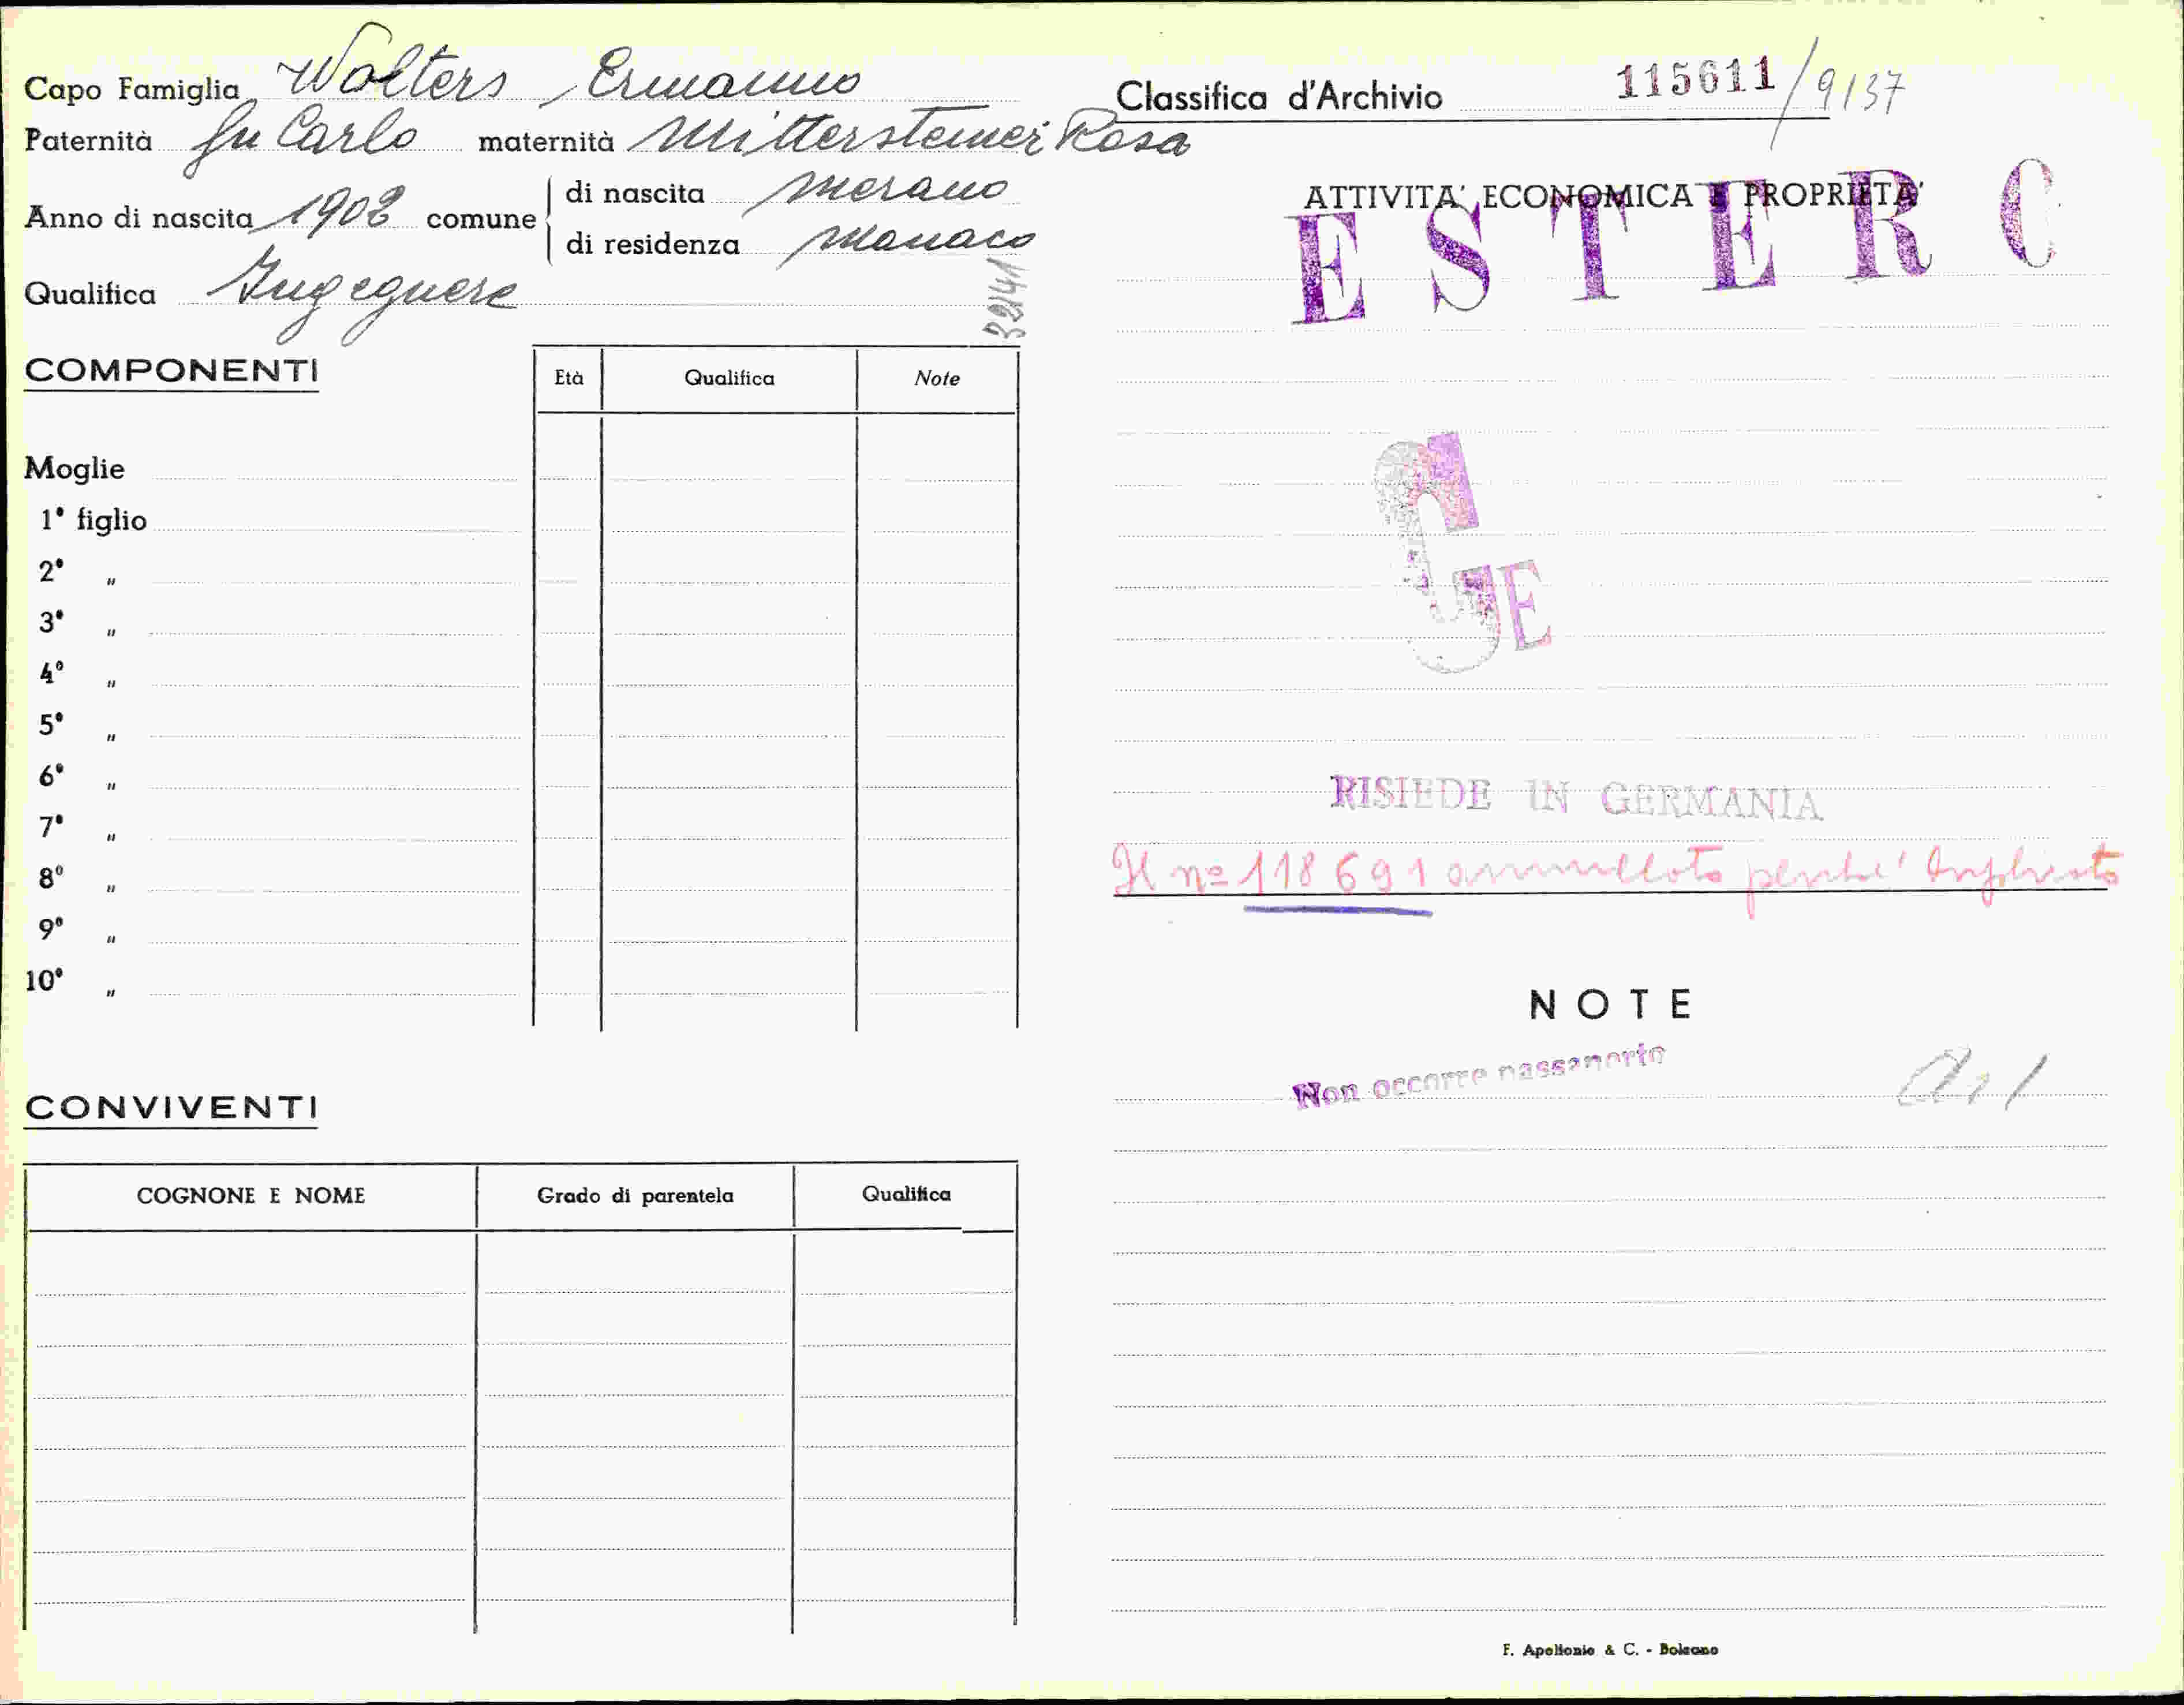 Capo Famiglia Wolters, Ermanno
Paternità fu Carlo maternità Mittersteiner Rosa
Anno di nascita 1902 comune di nascita Merano
di residenza Monaco
Qualifica Ingegnere
39141
COMPONENTI
Età Qualifica Note
Moglie
1° figlio
2° "
3° "
4° "
5° "
6° "
7° "
8° "
9° "
10° "
CONVIVENTI
COGNONE E NOME Grado di parentela Qualifica
Classifica d'Archivio 115611/9137
ATTIVITA' ECONOMICA E PROPRIETA'
ESTERO
GE
RISIEDE IN GERMANIA
Il nº 118691 annullato perché duplicato
NOTE
Non occorre passaporto
F. Apollonio & C. - Bolzano